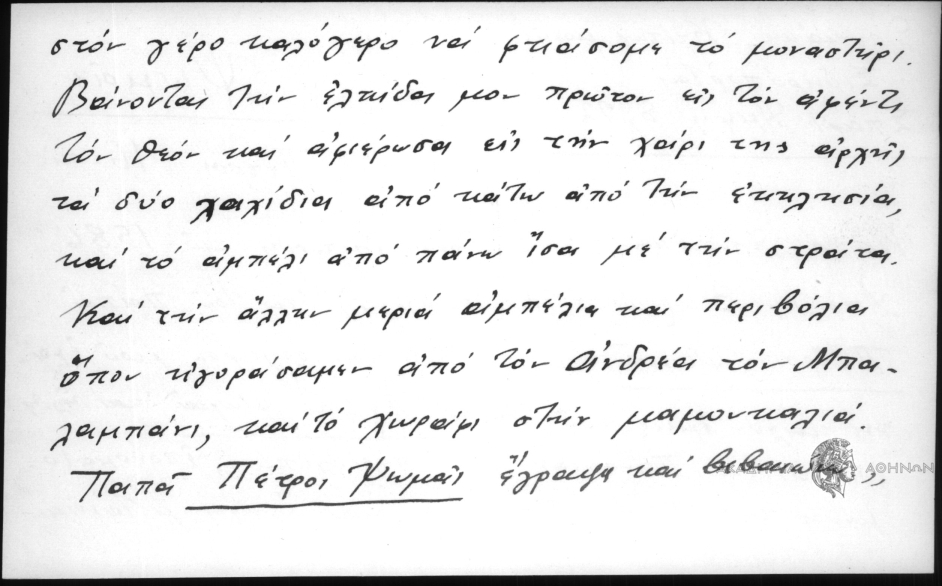 στόν γέρο καλόγερο νά φκιάσομε τό μοναστήρι.
Βάνοντας τήν ἐλπίδα μου πρῶτον εἰς τόν ἀφέντι
τόν Θεόν καί ἀφιέρωσα εἰς τήν χάρι της ἀρχῆς
τά δύο λαχίδια ἀπό κάτω ἀπό τήν ἐκκλησία,
καί τό ἀμπέλι ἀπό πάνω ἴσα μέ τήν στράτα.
Καί τήν ἄλλην μεριά ἀμπέλια καί περιβόλια
ὅπου ἠγοράσαμεν ἀπό τόν Ἀνδρέα τόν Μπα-
λαμπάνι, καί τό χωράφι στήν μαμουκαλιά.
Παπᾶ Πέτρος Ψωμᾶς ἔγραψε καί βεβαιώνω,,
ΑΘΗΝΩΝ